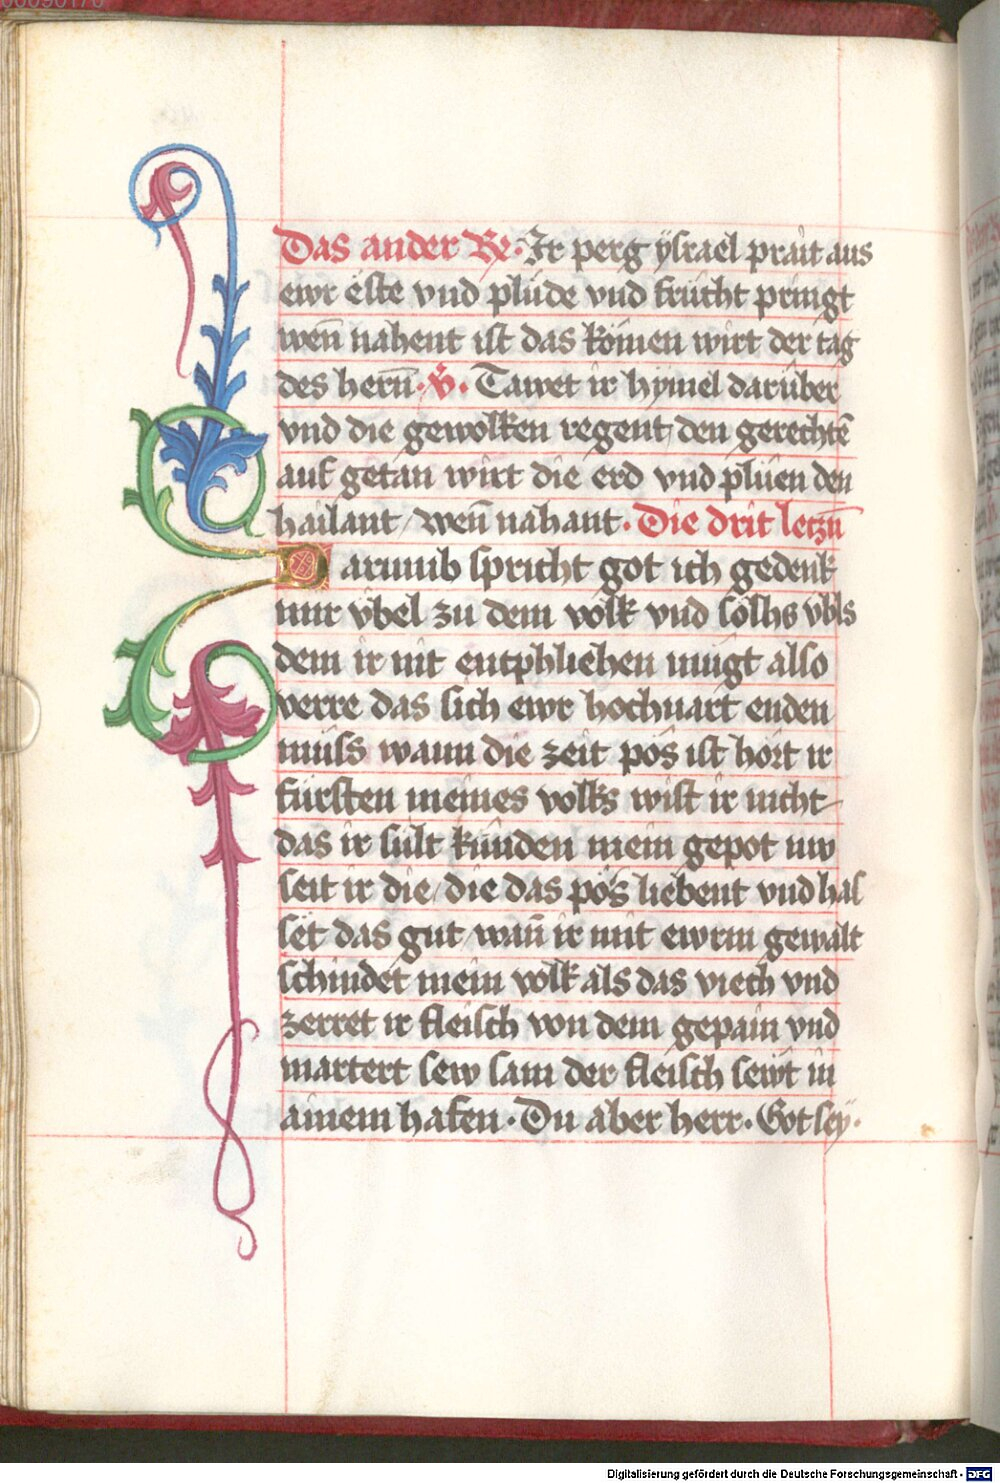 Das ander Rx. Ir perg ÿsrael prait aus
ewr este vnd plüde vnd frücht pringt
wen̄ nahent ist das kömen wirt der tag
des hern̄. V̄. Tawet ir hymel darüber
vnd die gewolken regent, den gerechtē
auf getan wirt die erd vnd plüen den
hailant, wen̄ nahant. Die drit leczn̄
Darumb spricht got ich gedenk
mir vbel zu dem volk vnd solhs vbls
dem ir nit entphliehen mügt also
verre das sich ewr hochuart enden
muss wann die zeit pös ist hört ir
fürsten meines volks wist ir nicht
das ir sült künden mein gepot nw
seit ir die, die das pös liebent vnd has
set das gut, wan̄ ir mit ewrm gewalt
schindet mein volk als das viech vnd
zerret ir fleisch von dem gepain vnd
martert sew sam der fleisch sewt in
ainem hafen. Du aber herr. Got seÿ.
Digitalisierung gefördert durch die Deutsche Forschungsgemeinschaft - DFG